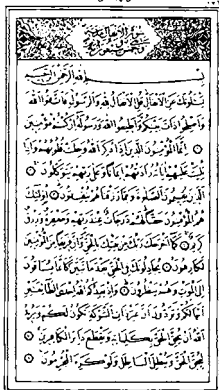 بِسْمِ اللهِ الرَّحْمٰنِ الرَّحِيمِ
يَسْئَلُونَكَ عَنِ الْاَنْفَالِ قُلِ الْاَنْفَالُ لِلّٰهِ وَالرَّسُولِ فَاتَّقُوا اللهَ
وَاَصْلِحُوا ذَاتَ بَيْنِكُمْ وَاَطِيعُوا اللهَ وَرَسُولَهُ اِنْ كُنْتُمْ مُؤْمِنِينَ
اِنَّمَا الْمُؤْمِنُونَ الَّذِينَ اِذَا ذُكِرَ اللهُ وَجِلَتْ قُلُوبُهُمْ وَاِذَا
تُلِيَتْ عَلَيْهِمْ اٰيَاتُهُ زَادَتْهُمْ اِيمَانًا وَعَلٰى رَبِّهِمْ يَتَوَكَّلُونَ
الَّذِينَ يُقِيمُونَ الصَّلٰوةَ وَمِمَّا رَزَقْنَاهُمْ يُنْفِقُونَ اُولٰئِكَ
هُمُ الْمُؤْمِنُونَ حَقًّا لَهُمْ دَرَجَاتٌ عِنْدَ رَبِّهِمْ وَمَغْفِرَةٌ وَرِزْقٌ
كَرِيمٌ كَمَا اَخْرَجَكَ رَبُّكَ مِنْ بَيْتِكَ بِالْحَقِّ وَاِنَّ فَرِيقًا مِنَ الْمُؤْمِنِينَ
لَكَارِهُونَ يُجَادِلُونَكَ فِي الْحَقِّ بَعْدَ مَا تَبَيَّنَ كَاَنَّمَا يُسَاقُونَ
اِلَى الْمَوْتِ وَهُمْ يَنْظُرُونَ وَاِذْ يَعِدُكُمُ اللهُ اِحْدَى الطَّائِفَتَيْنِ
اَنَّهَا لَكُمْ وَتَوَدُّونَ اَنَّ غَيْرَ ذَاتِ الشَّوْكَةِ تَكُونُ لَكُمْ وَيُرِيدُ
اللهُ اَنْ يُحِقَّ الْحَقَّ بِكَلِمَاتِهِ وَيَقْطَعَ دَابِرَ الْكَافِرِينَ
لِيُحِقَّ الْحَقَّ وَيُبْطِلَ الْبَاطِلَ وَلَوْ كَرِهَ الْمُجْرِمُونَ